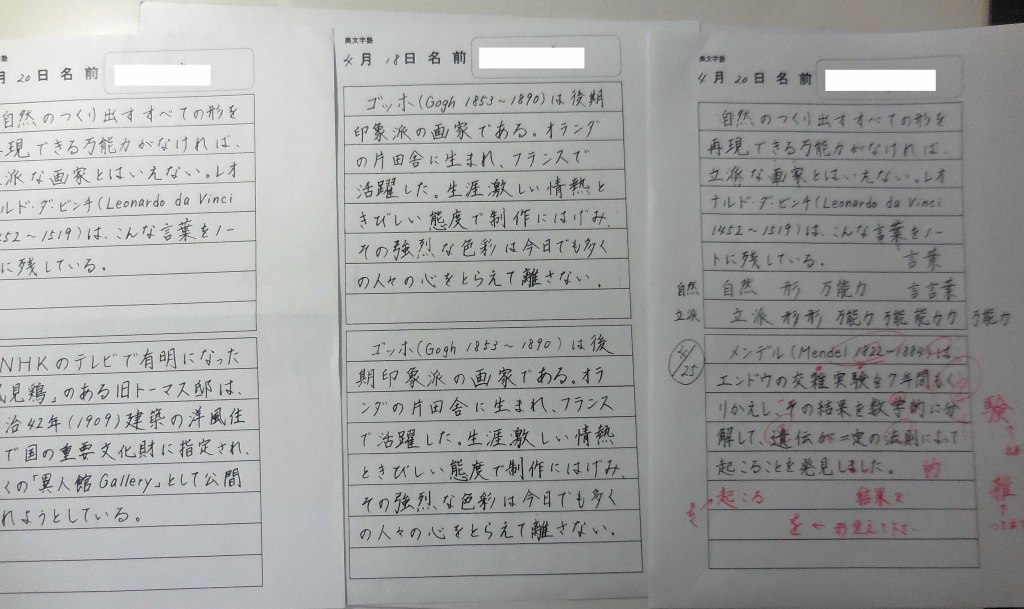 月 20日 名前
自然のつくり出すすべての形を
再現できる万能力がなければ、
立派な画家とはいえない。レオ
ナルド・ダ・ビンチ(Leonardo da Vinci
1452～1519)は、こんな言葉をノー
トに残している。
NHKのテレビで有明になった
見鶏」のある旧トーマス邸は、
治42年(1909)建築の洋風住
で国の重要文化財に指定され、
くの「異人館Gallery」として公開
れようとしている。
美文字塾
4月 18日 名前
ゴッホ(Gogh 1853～1890)は後期
印象派の画家である。オランダ
の片田舎に生まれ、フランスで
活躍した。生涯激しい情熱と
きびしい態度で制作にはげみ、
その強烈な色彩は今日でも多く
の人々の心をとらえて離さない。
ゴッホ(Gogh 1853～1890)は後
期印象派の画家である。オラ
ンダの片田舎に生まれ、フランス
で活躍した。生涯激しい情熱
ときびしい態度で制作にはげみ、
その強烈な色彩は今日でも多く
の人々の心をとらえて離さない。
美文字塾
4月 20日 名前
自然のつくり出すすべての形を
再現できる万能力がなければ、
立派な画家とはいえない。レオ
ナルド・ダ・ビンチ(Leonardo da Vinci
1452～1519)は、こんな言葉をノー
トに残している。 言葉
自然 自然 形 万能力 言言葉
立派 立派 形形 万能力 万能 能力力 万能力
4/25
メンデル(Mendel 1822～1884)は、
エンドウの交雑実験を7年間もく
りかえし、その結果を数学的に分
解して、遺伝が一定の法則によって
起こることを発見しました。 的
起こる 結果を
を ← 形変えて下さい
験
雑